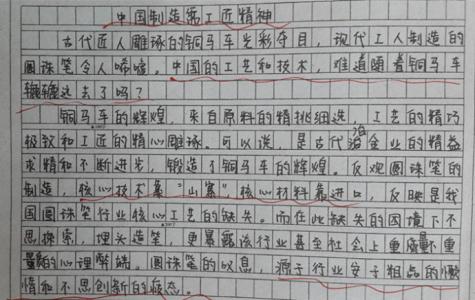 中国制造需工匠精神
古代匠人雕琢的铜马车光彩夺目,现代工人制造的
圆珠笔令人唏嘘。中国的工艺和技术,难道随着铜马车
辘辘远去了吗?
铜马车的辉煌,来自原料的精挑细选,工艺的精巧
极致和工匠的精心雕琢。可以说,是古代冶金业的精益
求精和不断进步,锻造了铜马车的辉煌。反观圆珠笔的
制造,核心技术靠“山寨”,核心材料靠进口,反映是我
国圆珠笔行业核心工艺的缺失。而在此缺失的困境下不
思探索,埋头造笔,更暴露该行业甚至社会上重量不重
质的心理弊端。圆珠笔的叹息,源于行业安于粗品的惰
情和不思创新的疲态。